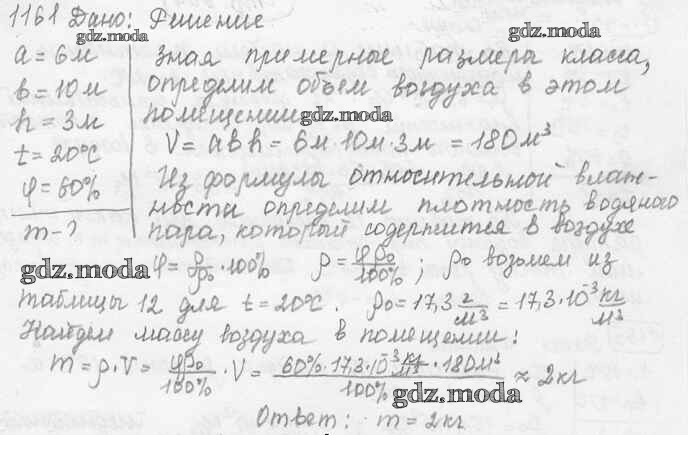 1161 Дано: Решение
gdz.moda
gdz.moda
a = 6м
Зная примерные размеры класса,
b = 10м
определим объем воздуха в этом
h = 3м
помещении
gdz.moda
t = 20°С
V = abh = 6м·10м·3м = 180м³
φ = 60%
Из формулы относительной влаж-
ности определим плотность водяного
m - ?
пара, который содержится в воздухе
gdz.moda
φ = ρ/ρ₀ · 100% ρ = φρ₀/100% ; ρ₀ возьмем из
таблицы 12 для t = 20°С. ρ₀ = 17,3 г/м³ = 17,3·10⁻³ кг/м³
Найдем массу воздуха в помещении:
m = ρ·V = φρ₀/100% · V = 60%·17,3·10⁻³ кг/м³ · 180м³/100% ≈ 2кг
gdz.moda
Ответ: m = 2кг